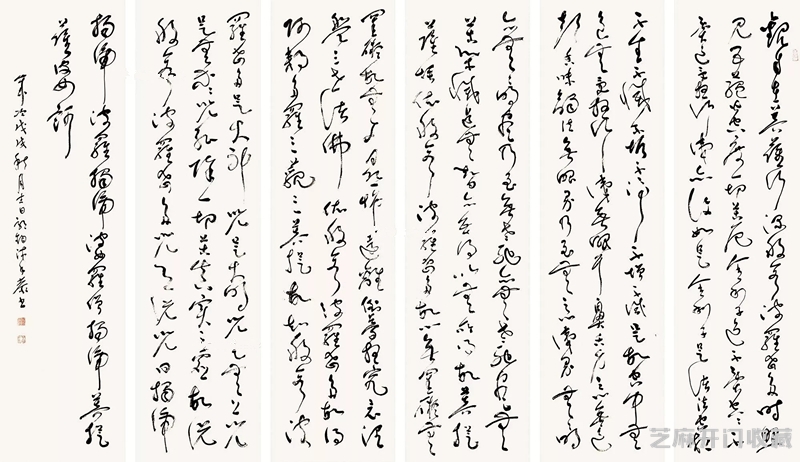 觀自在菩薩行深般若波羅蜜多時照
見五蘊皆空度一切苦厄舍利子色不異空空不
異色色即是空空即是色受想行識亦復如是舍利子是諸法空相
不生不滅不垢不淨不增不減是故空中無
色無受想行識無眼耳鼻舌身意無色
聲香味觸法無眼界乃至無意識界無無明
亦無無明盡乃至無老死亦無老死盡無
苦集滅道無智亦無得以無所得故菩提
薩埵依般若波羅蜜多故心無罣礙無
罣礙故無有恐怖遠離顛倒夢想究竟涅
槃三世諸佛依般若波羅蜜多故得
阿耨多羅三藐三菩提故知般若波
羅蜜多是大神咒是大明咒是無上咒
是無等等咒能除一切苦真實不虛故說
般若波羅蜜多咒即說咒曰揭諦
揭諦波羅揭諦波羅僧揭諦菩提
薩婆訶
歲次戊戌秋月
芝麻开门收藏